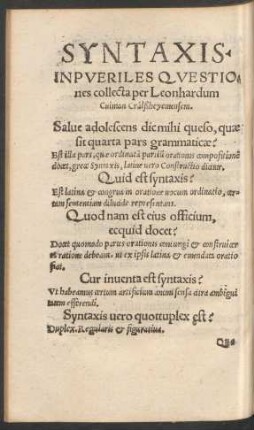 SYNTAXIS
IN PVERILES QVESTIO
nes collecta per Leonhardum
Culman Crailßheymensem.
Salue adolescens dic mihi queso, quæ
sit quarta pars grammaticæ?
Est illa pars, quæ ordinatā partiū orationis compositionē
docet, græcè Syntaxis, latine uero Constructio dicitur.
Quid est syntaxis?
Est latina & congrua in oratione uocum ordinatio,
sententiam dilucide representans.
Quod nam est eius officium,
ecquid docet?
Docet quomodo partes orationis coniungi & construi
ratione debeant, ut ex ipsis latina & emendata oratio
fiat.
Cur inuenta est syntaxis?
Vt habeamus certum artificium animi sensa citra ambigui
tatem efferendi.
Syntaxis uero quotuplex est?
Duplex. Regularis & figuratiua.
Quę